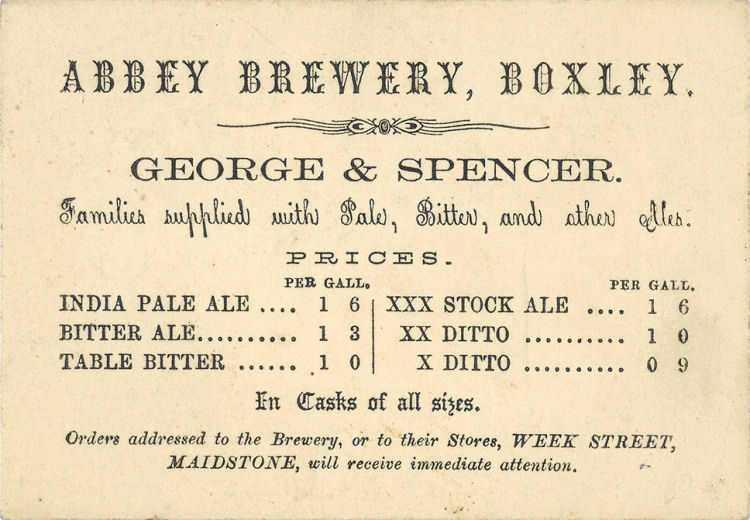 ABBEY BREWERY, BOXLEY.
GEORGE & SPENCER.
Families supplied with Pale, Bitter, and other Ales.
PRICES.
PER GALL.
INDIA PALE ALE .... 1 6
BITTER ALE.......... 1 3
TABLE BITTER ...... 1 0
PER GALL.
XXX STOCK ALE .... 1 6
XX DITTO .......... 1 0
X DITTO .......... 0 9
In Casks of all sizes.
Orders addressed to the Brewery, or to their Stores, WEEK STREET,
MAIDSTONE, will receive immediate attention.